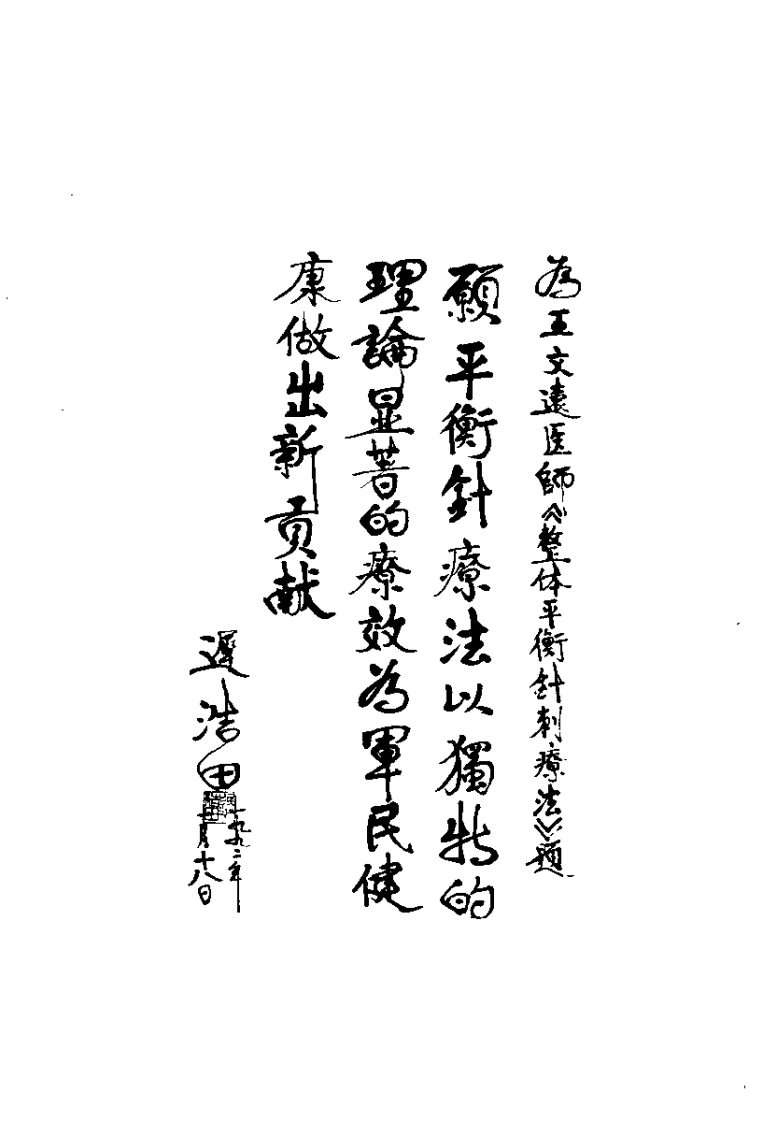 为王文遠医師《整体平衡針刺療法》题
願平衡針療法以獨特的
理論显著的療效为軍民健
康做出新貢献
遲浩田
一九九二年
十月十八日